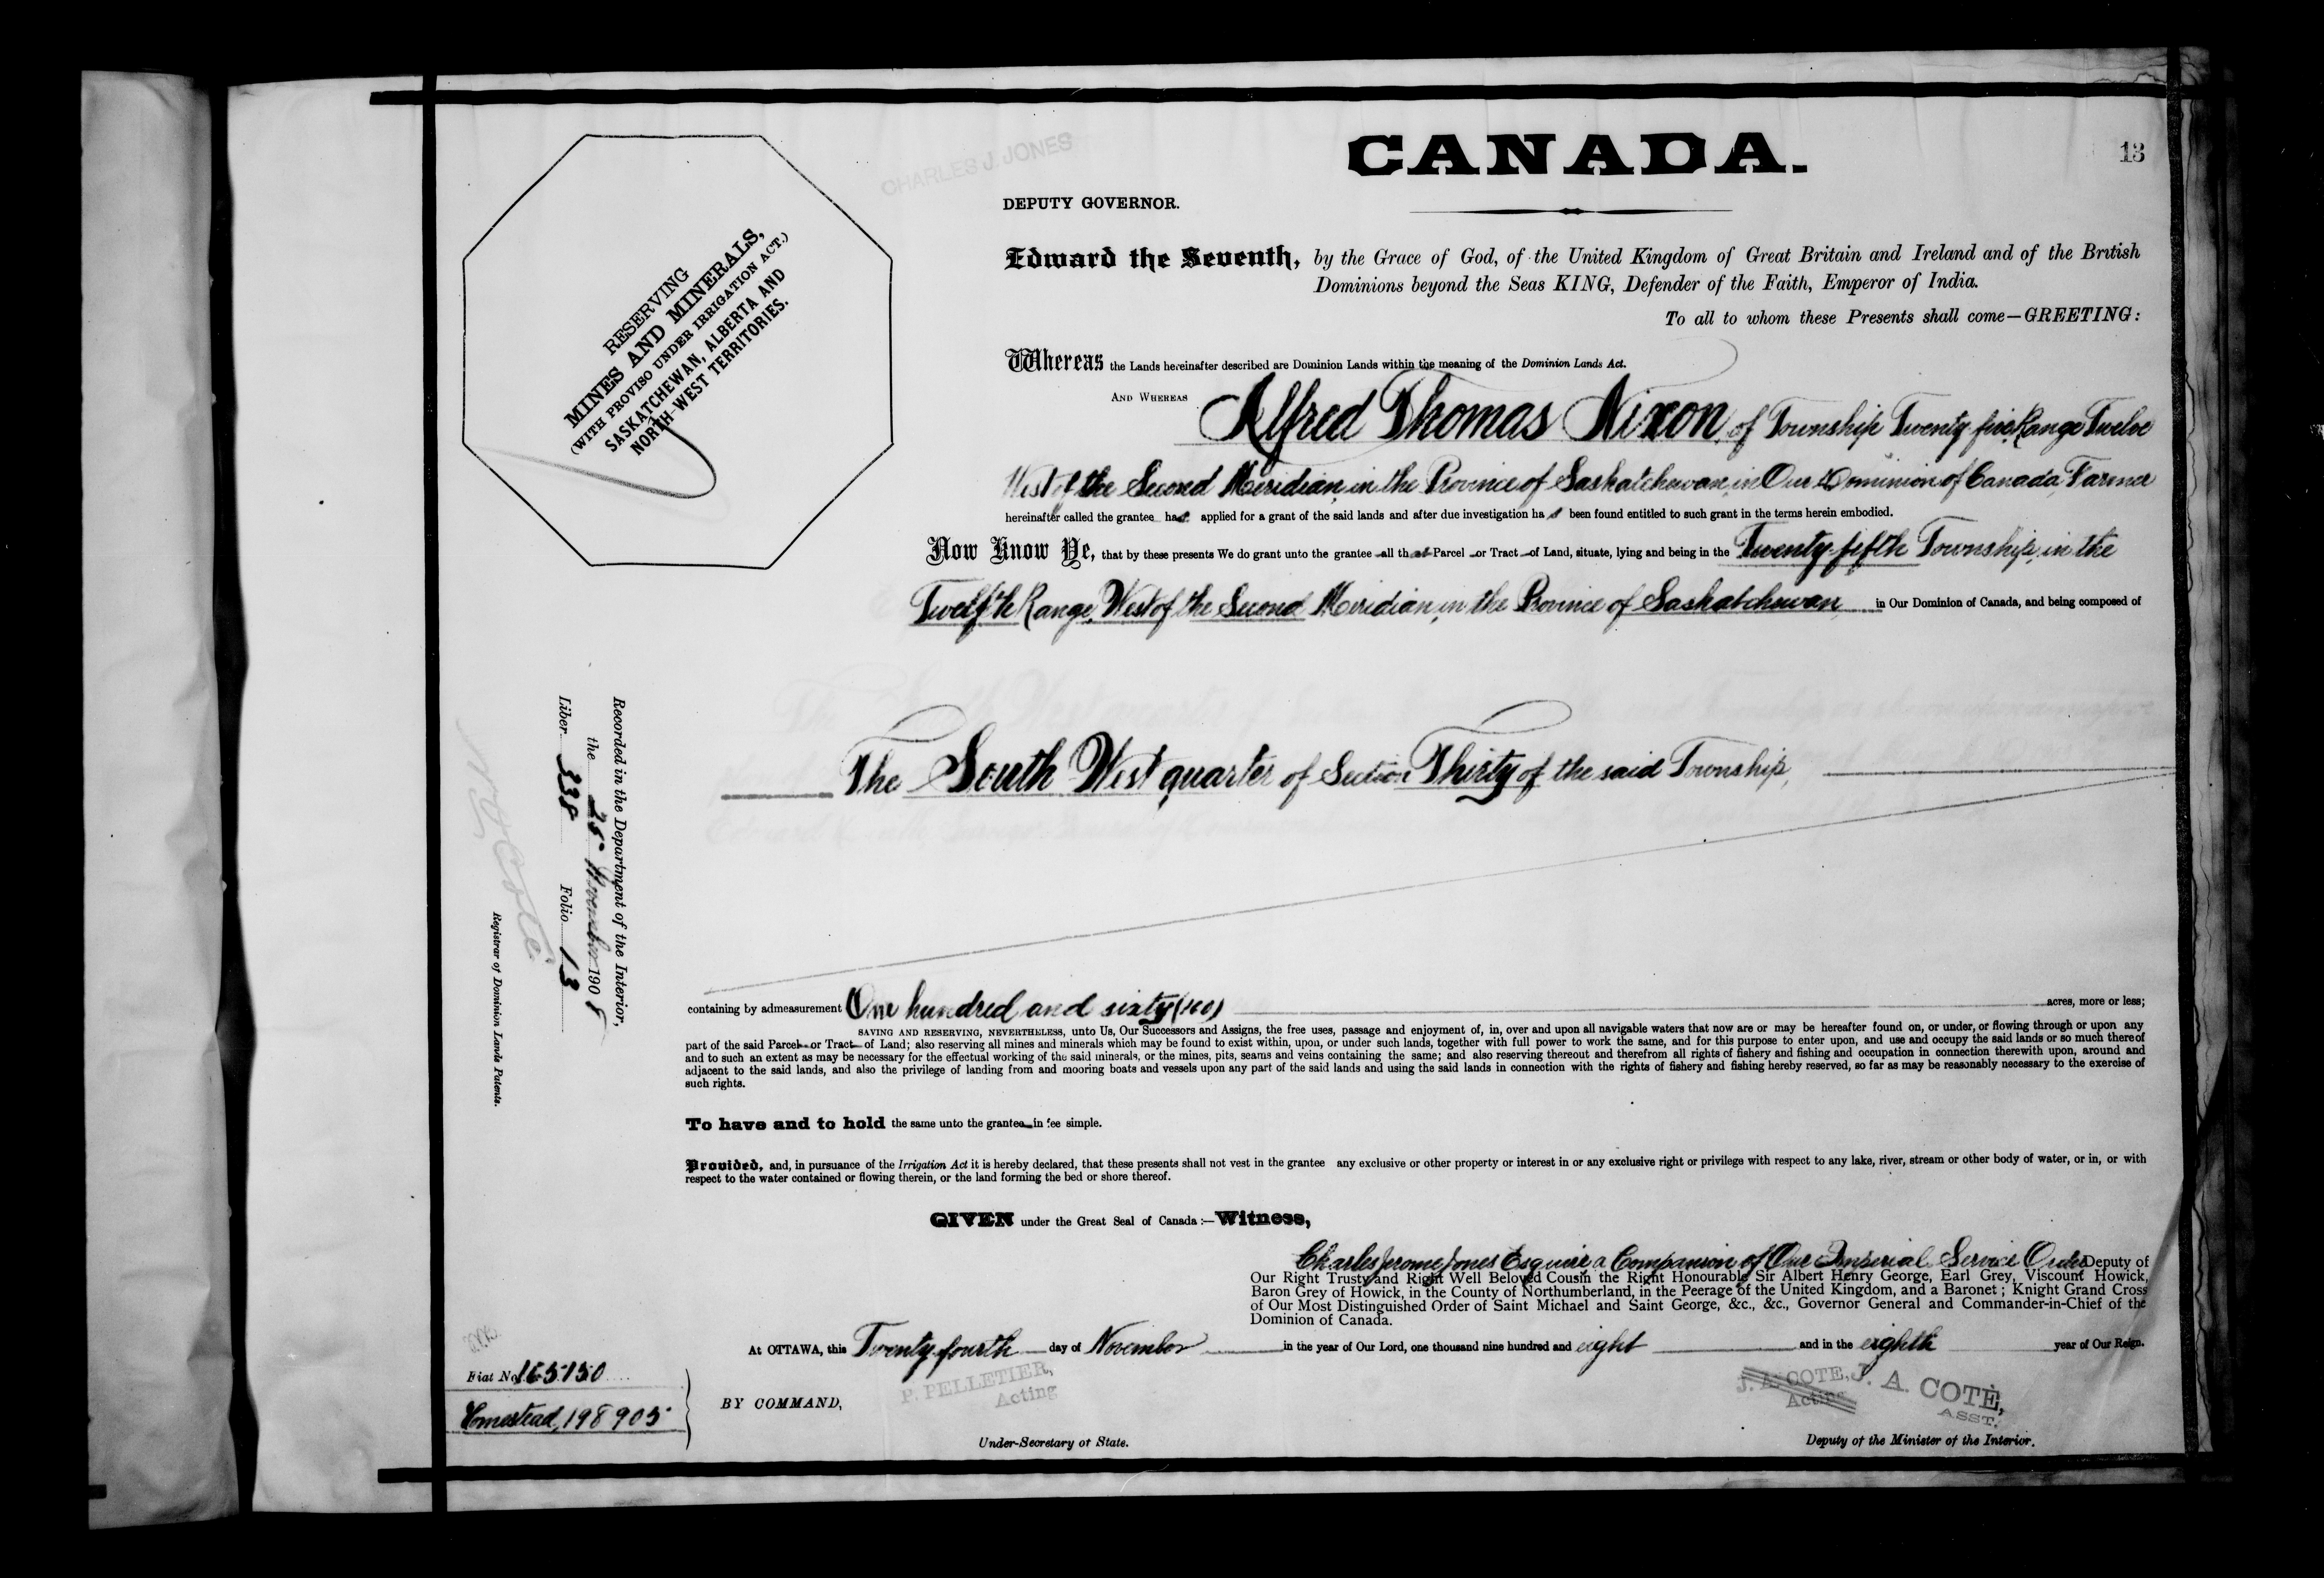 CANADA.
13
CHARLES J. JONES
DEPUTY GOVERNOR.
RESERVING
MINES AND MINERALS,
(WITH PROVISO UNDER IRRIGATION ACT.)
SASKATCHEWAN, ALBERTA AND
NORTH-WEST TERRITORIES.
Edward the Seventh, by the Grace of God, of the United Kingdom of Great Britain and Ireland and of the British
Dominions beyond the Seas KING, Defender of the Faith, Emperor of India.
To all to whom these Presents shall come—GREETING:
Whereas the Lands hereinafter described are Dominion Lands within the meaning of the Dominion Lands Act.
AND WHEREAS Alfred Thomas Nixon, of Township Twenty five Range Twelve
West of the Second Meridian, in the Province of Saskatchewan, in Our Dominion of Canada, Farmer
hereinafter called the grantee has applied for a grant of the said lands and after due investigation has been found entitled to such grant in the terms herein embodied.
Now Know Ye, that by these presents We do grant unto the grantee all that Parcel or Tract of Land, situate, lying and being in the Twenty-fifth Township, in the
Twelfth Range, West of the Second Meridian, in the Province of Saskatchewan in Our Dominion of Canada, and being composed of
The South West quarter of Section Thirty of the said Township,
Recorded in the Department of the Interior,
the 25 November 1908
Liber 338 Folio 13
N. O. Coté
Registrar of Dominion Lands Patents.
containing by admeasurement One hundred and sixty (160) acres, more or less;
SAVING AND RESERVING, NEVERTHELESS, unto Us, Our Successors and Assigns, the free uses, passage and enjoyment of, in, over and upon all navigable waters that now are or may be hereafter found on, or under, or flowing through or upon any
part of the said Parcel or Tract of Land; also reserving all mines and minerals which may be found to exist within, upon, or under such lands, together with full power to work the same, and for this purpose to enter upon, and use and occupy the said lands or so much thereof
and to such an extent as may be necessary for the effectual working of the said minerals, or the mines, pits, seams and veins containing the same; and also reserving thereout and therefrom all rights of fishery and fishing and occupation in connection therewith upon, around and
adjacent to the said lands, and also the privilege of landing from and mooring boats and vessels upon any part of the said lands and using the said lands in connection with the rights of fishery and fishing hereby reserved, so far as may be reasonably necessary to the exercise of
such rights.
To have and to hold the same unto the grantee in fee simple.
Provided, and, in pursuance of the Irrigation Act it is hereby declared, that these presents shall not vest in the grantee any exclusive or other property or interest in or any exclusive right or privilege with respect to any lake, river, stream or other body of water, or in, or with
respect to the water contained or flowing therein, or the land forming the bed or shore thereof.
GIVEN under the Great Seal of Canada:—Witness,
Charles Jerome Jones Esquire a Companion of Our Imperial Service Order Deputy of
Our Right Trusty and Right Well Beloved Cousin the Right Honourable Sir Albert Henry George, Earl Grey, Viscount Howick,
Baron Grey of Howick, in the County of Northumberland, in the Peerage of the United Kingdom, and a Baronet; Knight Grand Cross
of Our Most Distinguished Order of Saint Michael and Saint George, &c., &c., Governor General and Commander-in-Chief of the
Dominion of Canada.
At OTTAWA, this Twenty-fourth day of November in the year of Our Lord, one thousand nine hundred and eight and in the eighth year of Our Reign.
Fiat No. 165150
Homestead, 198905
BY COMMAND,
P. PELLETIER,
Acting
Under-Secretary of State.
J. A. COTE,
Acting
J. A. COTÉ,
ASST.
Deputy of the Minister of the Interior.